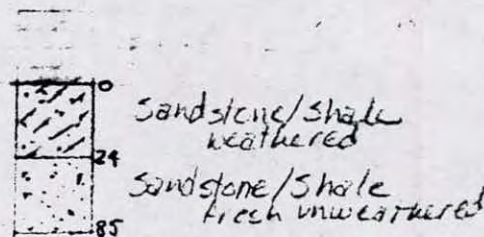 0
Sandstone/Shale
weathered
24
Sandstone/Shale
fresh unweathered
85